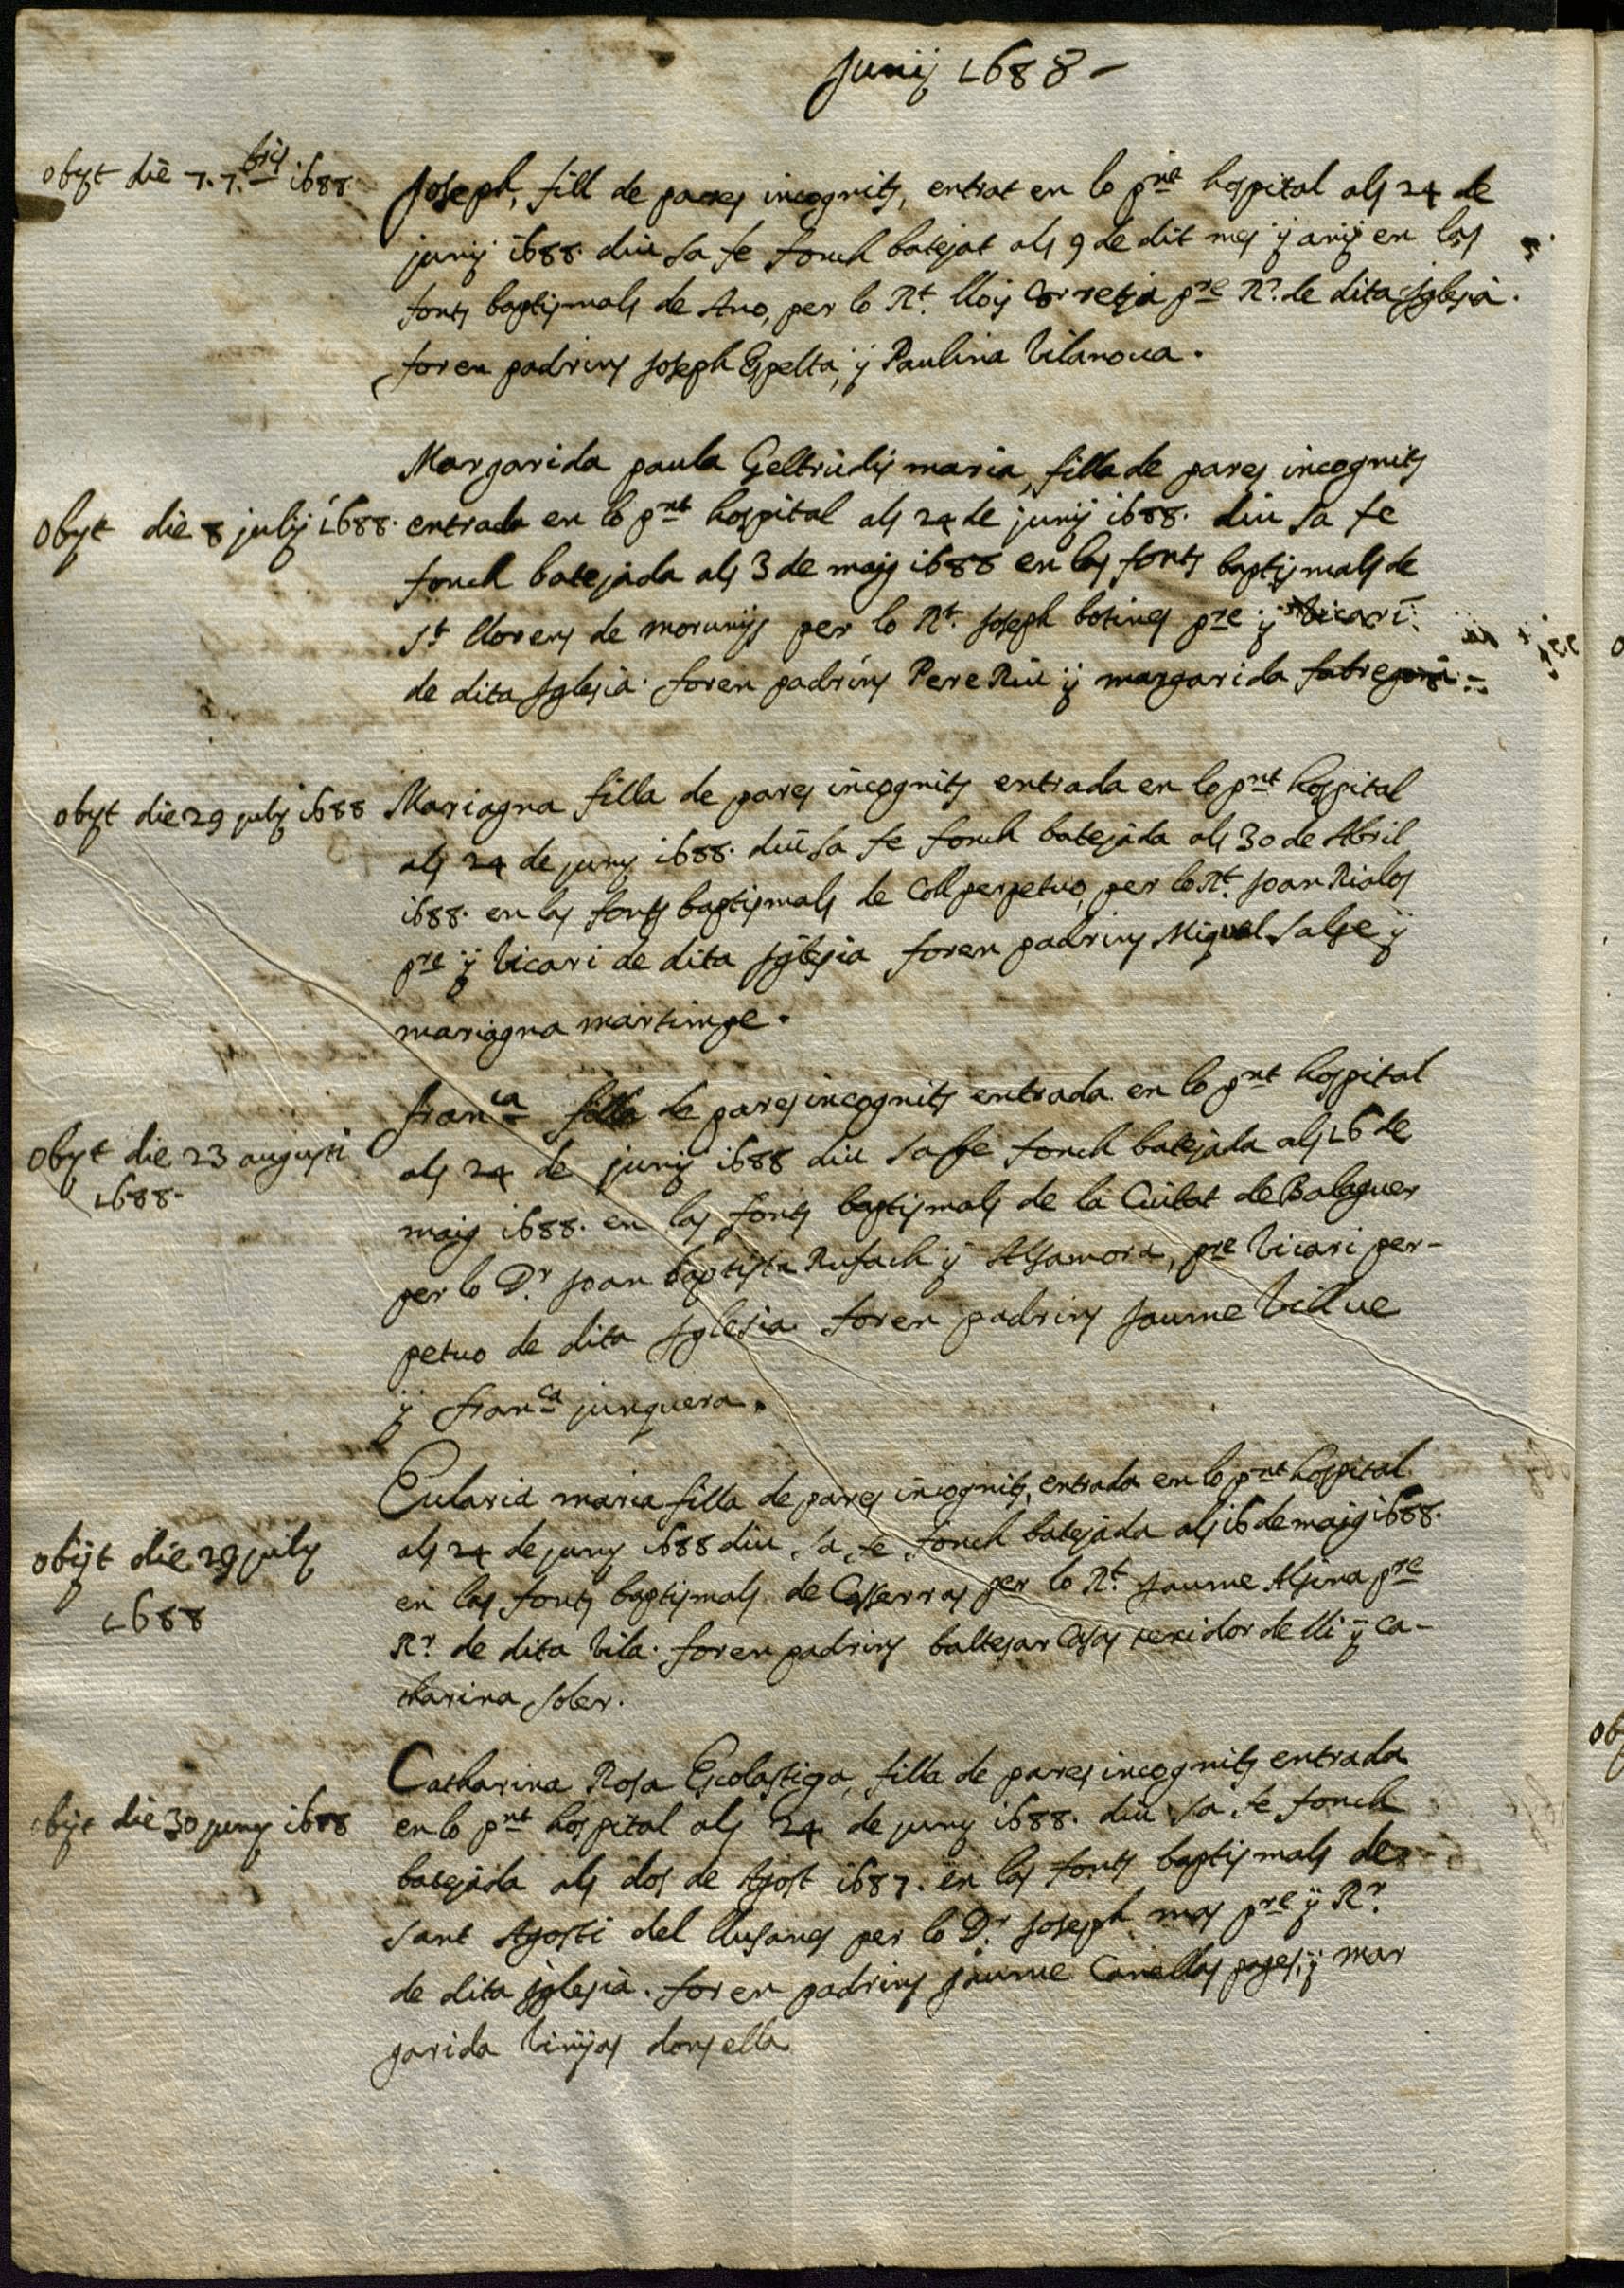 Junij 1688 -
obijt die 7. 7.bris 1688
Joseph, fill de pares incognits, entrat en lo pnt hospital als 24 de
junij 1688. diu sa fe fonch batejat als 9 de dit mes ÿ anÿ en las
fonts baptismals de Ano, per lo Rt. lloÿs Corretja pre Rr. de dita Iglesia.
foren padrins Joseph Espelta, ÿ Paulina Vilanova.
Obijt die 8 julij 1688.
Margarida paula Geltrudis maria, filla de pares incognits
entrada en lo pnt hospital als 24 de junij 1688. diu sa fe
fonch batejada als 3 de maig 1688 en las fonts baptismals de
St llorens de morunÿs per lo Rt. Joseph botines pre ÿ Vicari
de dita Iglesia. foren padrins Pere Riu ÿ margarida
obijt die 29 julij 1688
Mariagna filla de pares incognits entrada en lo pnt hospital
als 24 de junÿ 1688. diu sa fe fonch batejada als 30 de Abril
1688. en las fonts baptismals de Coll perpetuo, per lo Rt. Joan Rialos
pre ÿ Vicari de dita Iglesia foren padrins Miquel Salse ÿ
mariagna martinge.
Obijt die 23 augusti
1688.
Franca filla de pares incognits entrada en lo pnt hospital
als 24 de junij 1688 diu sa fe fonch batejada als 16 de
maig 1688. en las fonts baptismals de la Ciutat de Balaguer
per lo Dr. Joan baptista Rufach ÿ Alsamora, pre Vicari per-
petuo de dita Iglesia. foren padrins Jaume Villue
ÿ Franca junquera.
obijt die 29 julÿ
1688
Eularia maria filla de pares incognits, entrada en lo pnt hospital
als 24 de junÿ 1688 diu sa fe fonch batejada als 16 de maig 1688.
en las fonts baptismals de Casserras per lo Rt. Jaume Alsina pre
Rr. de dita Vila. foren padrins baltesar Casas texidor de lli ÿ Ca-
tharina Soler.
obijt die 30 junÿ 1688
Catharina Rosa Escolastiga, filla de pares incognits entrada
en lo pnt hospital als 24 de junÿ 1688. diu sa fe fonch
batejada als dos de Agost 1687. en las fonts baptismals de
Sant Agosti del llusanes per lo Dr. Joseph mas pre ÿ Rr.
de dita Iglesia. foren padrins Jaume Canellas pages, ÿ mar
garida Vinÿas donsella